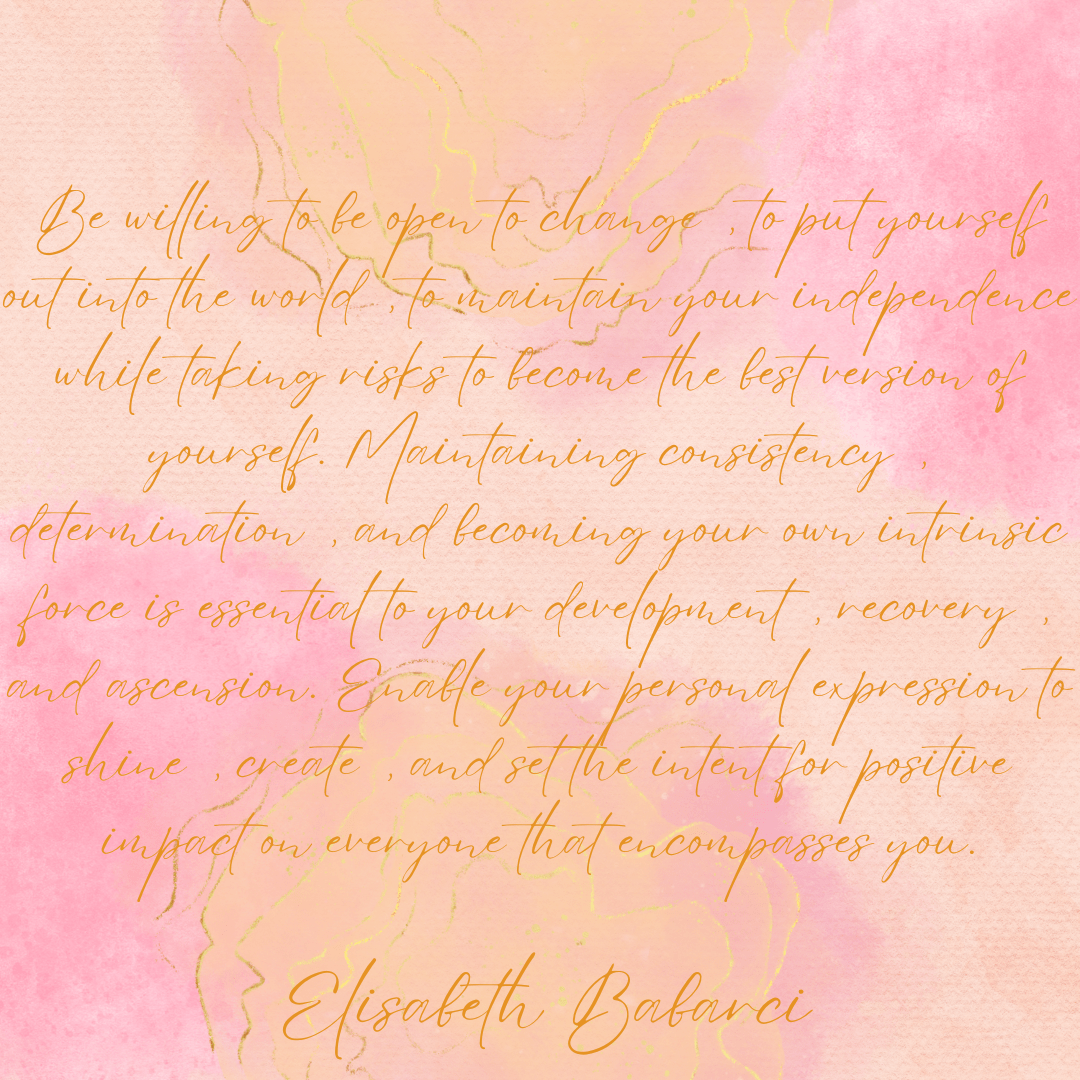 Be willing to be open to change , to put yourself
out into the world , to maintain your independence
while taking risks to become the best version of
yourself. Maintaining consistency ,
determination , and becoming your own intrinsic
force is essential to your development , recovery ,
and ascension. Enable your personal expression to
shine , create , and set the intent for positive
impact on everyone that encompasses you.
Elisabeth Babarci